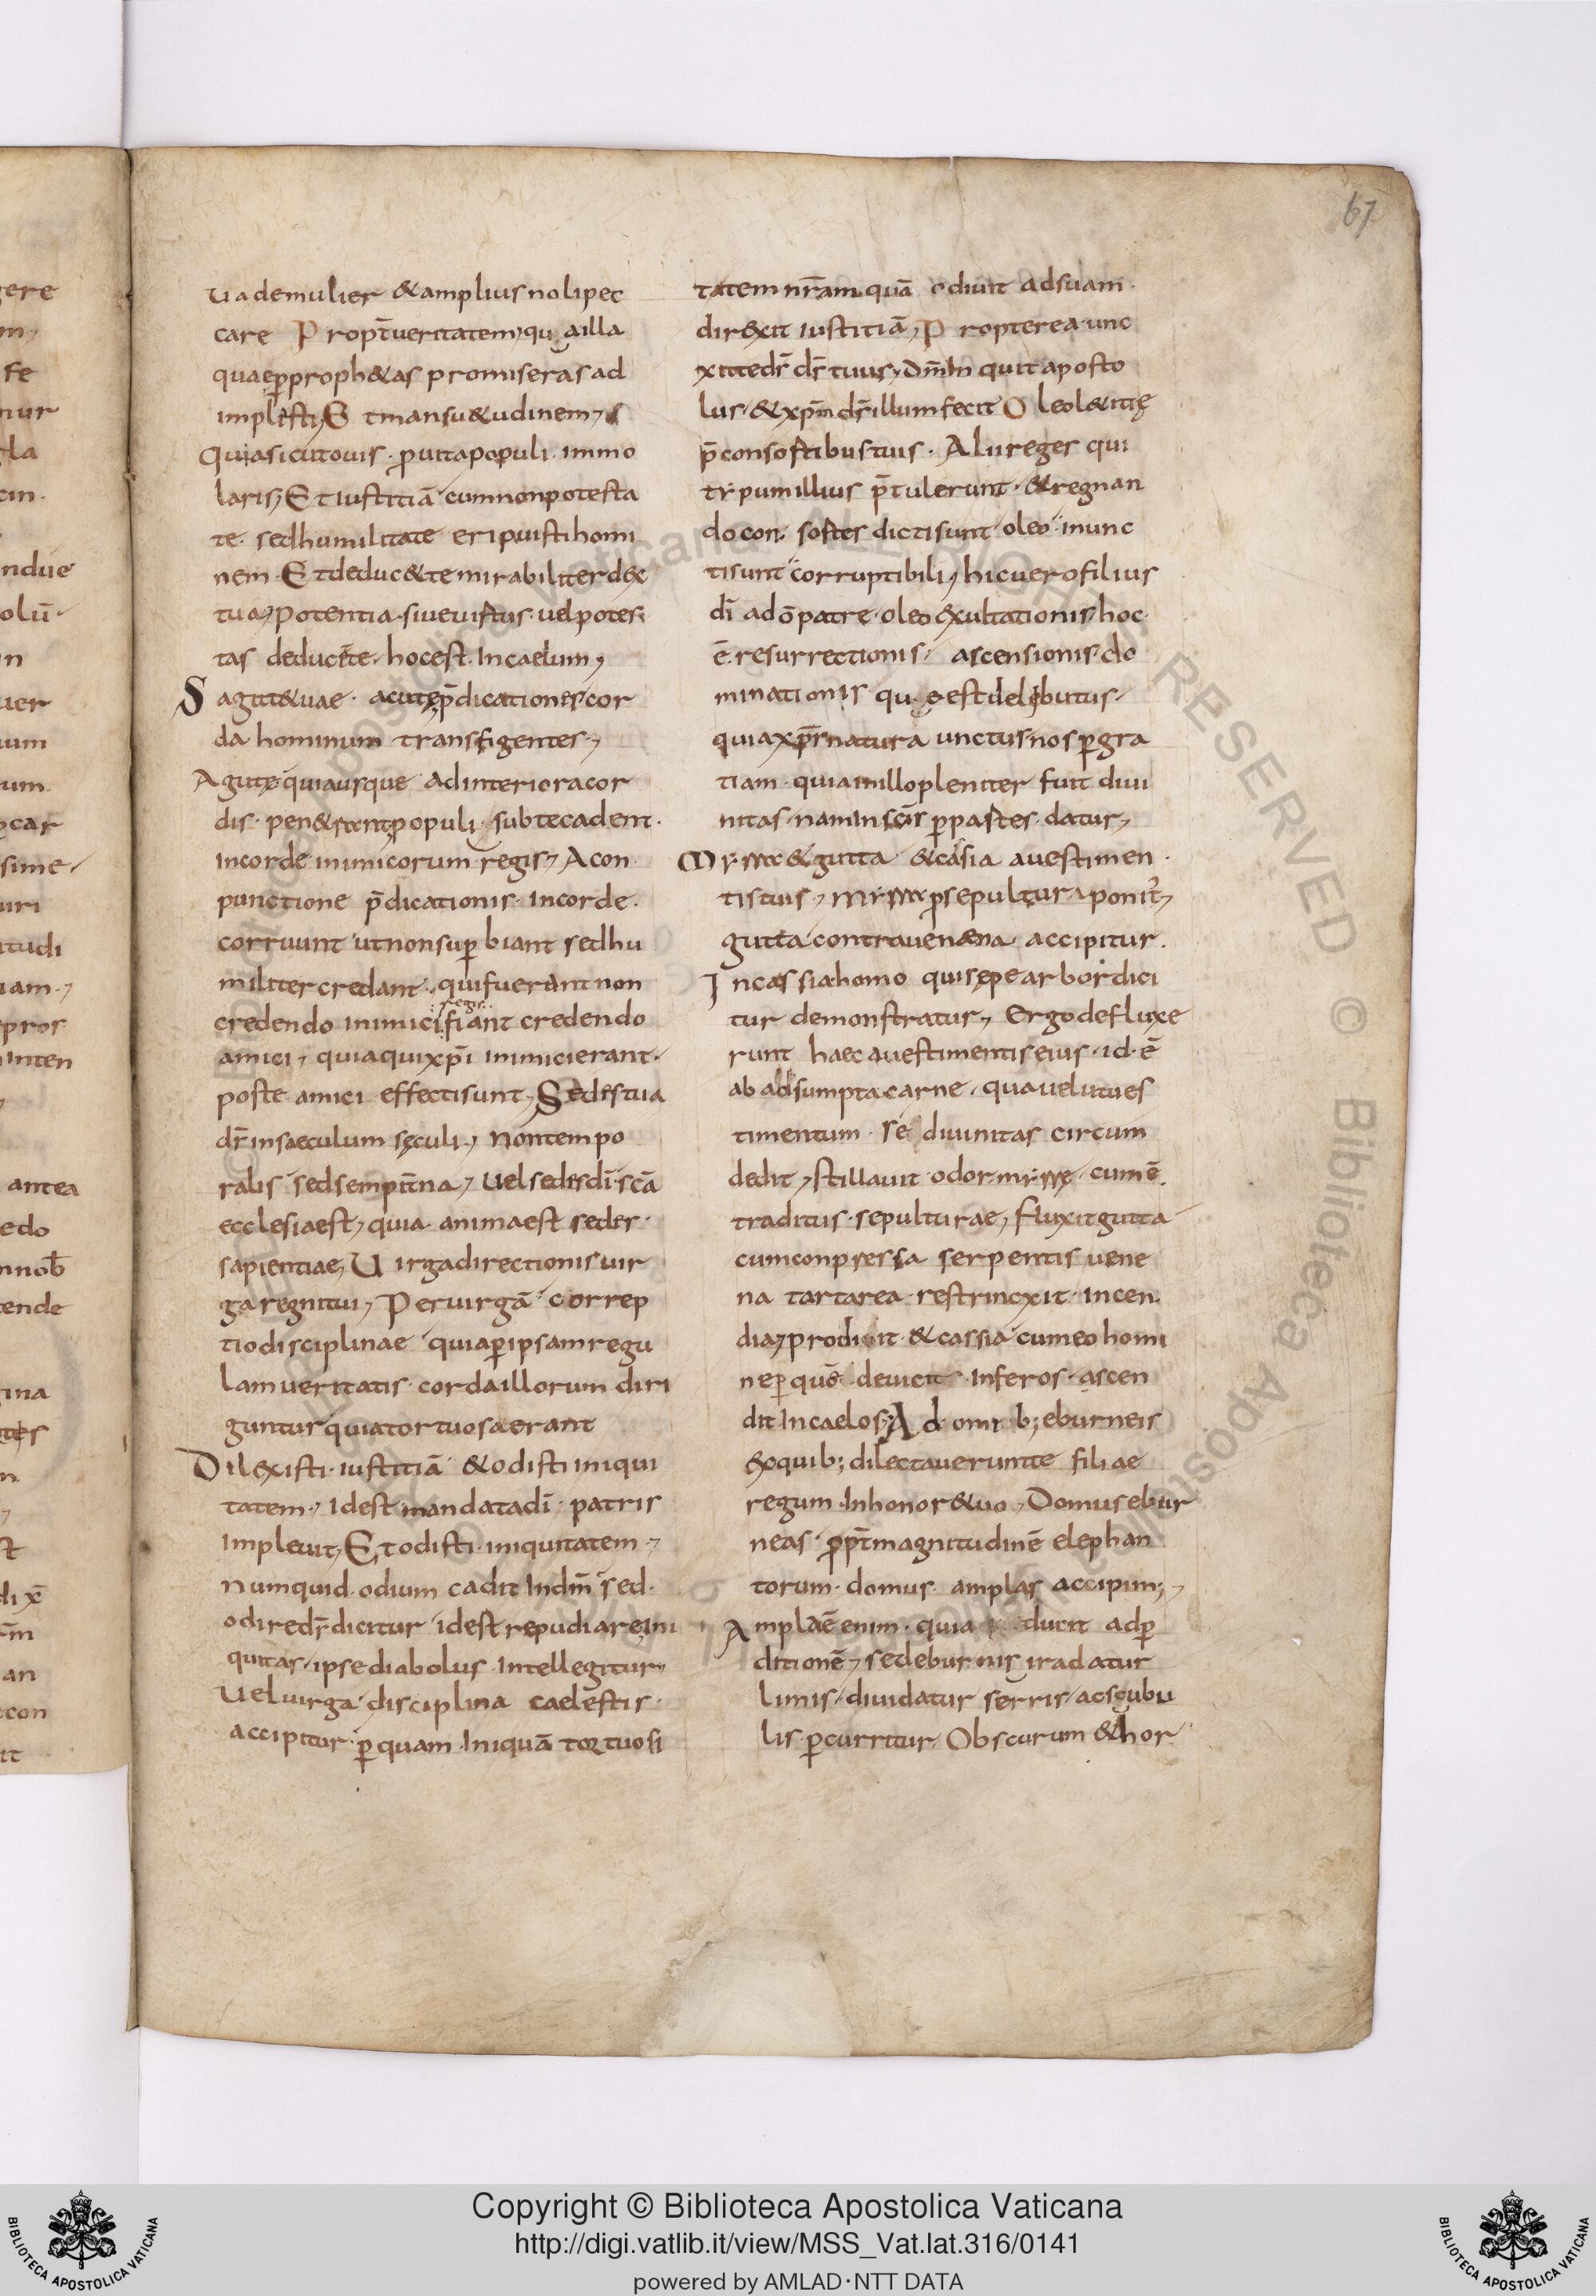 67
uademulier &ampliusnolipec
care Propt̄ueritatem, quęailla
quaeꝑproph&as promiserasad
implesti, Etmansu&udinem,
Quiasicutouis · prouitapopuli · immo
laris, Etiustitiā cumnonpotesta
te · sedhumilitate eripuistihomi
nem · Etdeduc&temirabiliterdex
tua, potentia · siueuirtus · uelpotes
tas deducet te · hocest · Incaelum,
Sagitt&uae · acutęp̄dicationescor
da hominum transfigentes,
Agutę quiausque adinterioracor
dis · pen&rant, populi · subtecadent ·
Incorde inimicorum regis, Acon
punctione p̄dicationis · incorde ·
corruunt utnonsuꝑbiant sedhu
militercredant · quifuerantnon
regis
credendo inimici fiant credendo
amici, quiaquixp̄i inimicierant ·
poste amici effectisunt, Sedestua
ds̄insaeculum sęculi, Nontempo
ralis sedsempit̄na, Uelsedesdī · scā
ecclesiaest, quia animaest sedes ·
sapientiae, Uirgadirectionisuir
garegnitui, Peruirgā correp
tiodisciplinae quiaꝑipsamregu
lamueritatis · cordaillorum diri
guntur quiatortuosaerant
Dilexisti · iustitiā &odistiiniqui
tatem, Idest mandatadī · patris
Impleuit, Etodisti · iniquitatem,
Numquid · odium cadit Indm̄ sed ·
odireds̄dicitur idestrepudiare, Ini
quitas · ipsediabolus Intellegitur,
Ueluirga disciplina caelestis ·
accipitur · ꝑquam · Iniquā tortuosi
tatemnr̄am quā odiuit adsuam ·
direxit iustitiā, Propterea unc
xitteds̄ ds̄tuus, dm̄ Inquitaposto
lus · &xp̄m ds̄illumfecit Oleol&itię
p̄consortibustuis · Aliireges qui
typumillius p̄tulerunt · &regnan
docon sortes dictisunt · oleo inunc
tisunt corruptibili, hicuerofilius
dī adōpatre · oleo exultationis, hoc ·
ē · resurrectionis · ascensionis · do
minationis quęestdelibutus ·
quiaxp̄snatura unctus, nosꝑgra
tiam · quiainillopleniter fuit diui
nitas · nam in scīs ꝑpartes · datur,
Myrra &gutta &casia auestimen ·
tistuis, myrraprosepultura ponit̄,
gutta contrauenena accipitur ·
Incassiahomo quisępearbordici
tur demonstratur, Ergodefluxe
runt haecauestimentiseius · id · ē
ab adsumptacarne · quaueluties
timentum · se diuinitas circum
dedit, stillauit · odor · myrrę · cumē
traditus · sepulturae, fluxitgutta
cumconpressa serpentis uene
na tartarea · restrincxit · incen
dia, prodiit · &cassia cumeohomi
neꝑquē deuictis Inferos · ascen
dit Incaelos, A domib; eburneis
exquib; dilectaueruntte filiae
regum · Inhonor&uo, Domusebur
neas · propt̄magnitudinē elephan
torum · domus · amplas accipim;,
Amplaē enim · quia ducit adꝑ
ditionē, sedeburnis · iradatur
limis · diuidatur serris · acscubu
lis · ꝑcurritur · Obscurum &hor
Copyright © Biblioteca Apostolica Vaticana
http://digi.vatlib.it/view/MSS_Vat.lat.316/0141
powered by AMLAD·NTT DATA